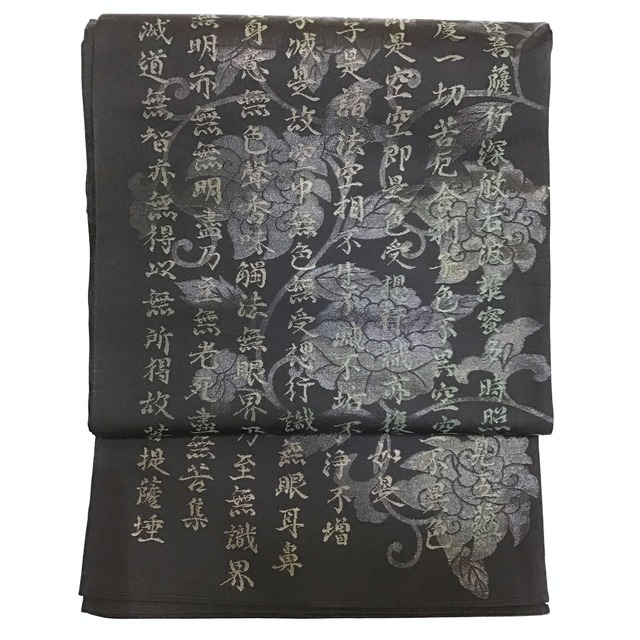 菩薩行深般若波羅蜜多時照見五蘊
度一切苦厄舍利子色不異空空不異色
即是空空即是色受想行識亦復如是
子是諸法空相不生不滅不垢不淨不增
不減是故空中無色無受想行識無眼耳鼻
身意無色聲香味觸法無眼界乃至無識界
無明亦無無明盡乃至無老死盡無苦集
滅道無智亦無得以無所得故菩提薩埵